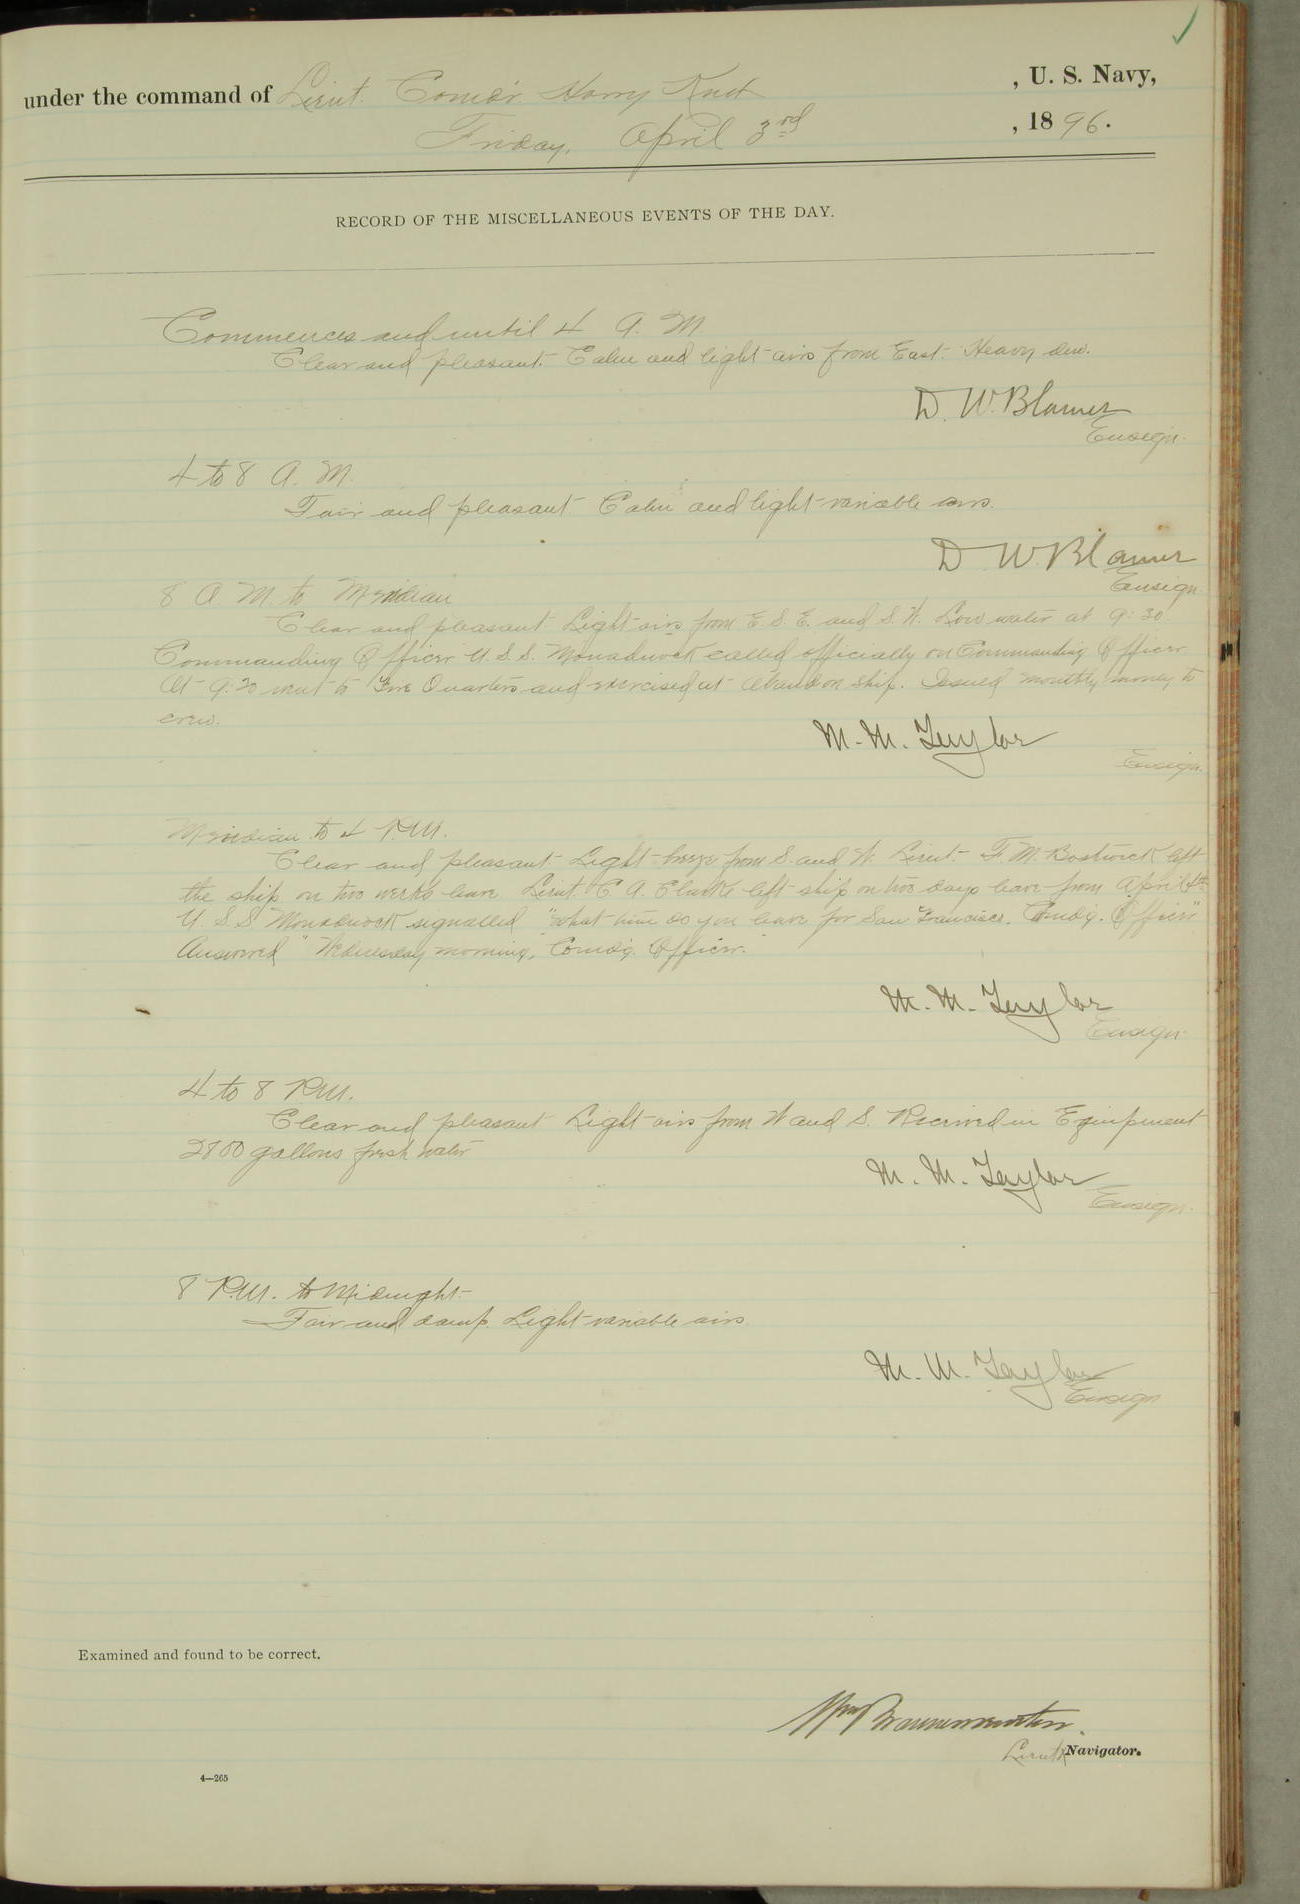 under the command of Lieut. Comdr. Harry Knox , U. S. Navy,
Friday, April 3rd , 1896.
RECORD OF THE MISCELLANEOUS EVENTS OF THE DAY.
Commences and until 4 A. M.
Clear and pleasant. Calm and light airs from East. Heavy dew.
D. W. Blamer
Ensign.
4 to 8 A. M.
Fair and pleasant Calm and light variable airs.
D. W. Blamer
Ensign
8 A. M. to Meridian
Clear and pleasant Light airs from E. S. E. and S. W. Low water at 9:30
Commanding Officer U. S. S. Monadnock called officially on Commanding Officer
At 9:30 went to Fire Quarters and exercised at abandon ship. Issued monthly money to
crew.
M. M. Taylor
Ensign.
Meridian to 4 P.M.
Clear and pleasant Light breeze from S. and W. Lieut. F. M. Bostwick left
the ship on two weeks leave Lieut. C. A. Clarke left ship on two days leave from April 4th
U. S. S. Monadnock signalled "What time do you leave for San Francisco. Comdg. Officer"
Answered "Wednesday morning, Comdg. Officer."
M. M. Taylor
Ensign.
4 to 8 P.M.
Clear and pleasant Light airs from W and S. Received in Equipment
2800 gallons fresh water
M. M. Taylor
Ensign.
8 P.M. to Midnight
Fair and damp Light variable airs
M. M. Taylor
Ensign
Examined and found to be correct.
Wm Braunersreuther.
Lieut. Navigator.
4—265